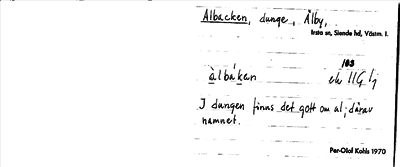 Albacken, dunge, Älby,
Irsta sn, Siende hd, Västm. l.
103
àlbàken
ek 11G
I dungen finns det gott om al; därav
namnet.
Per-Olof Kohls 1970